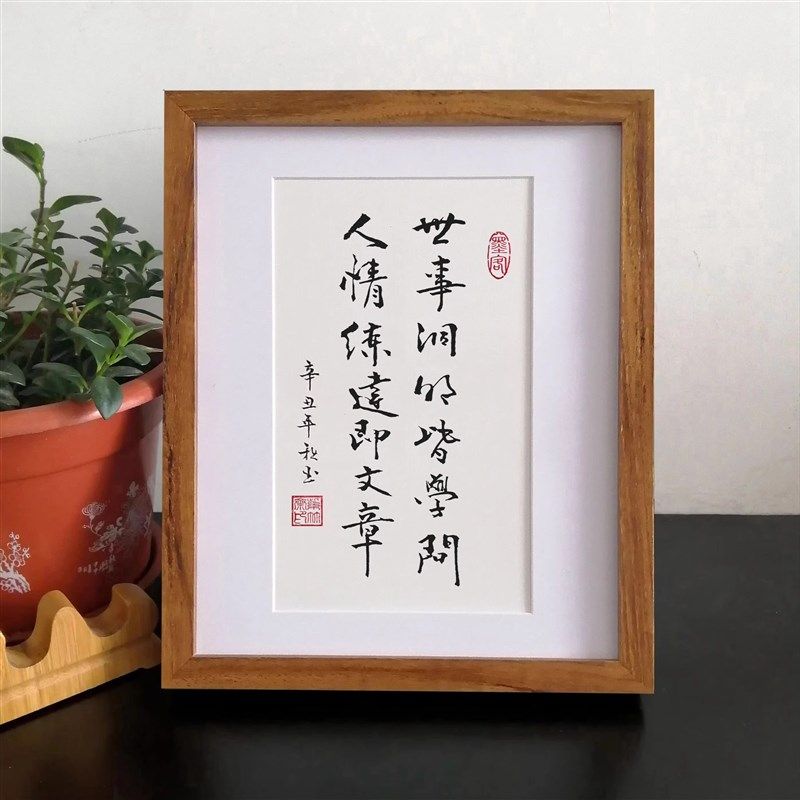 墨客
世事洞明皆學問
人情练達即文章
辛丑年秋书